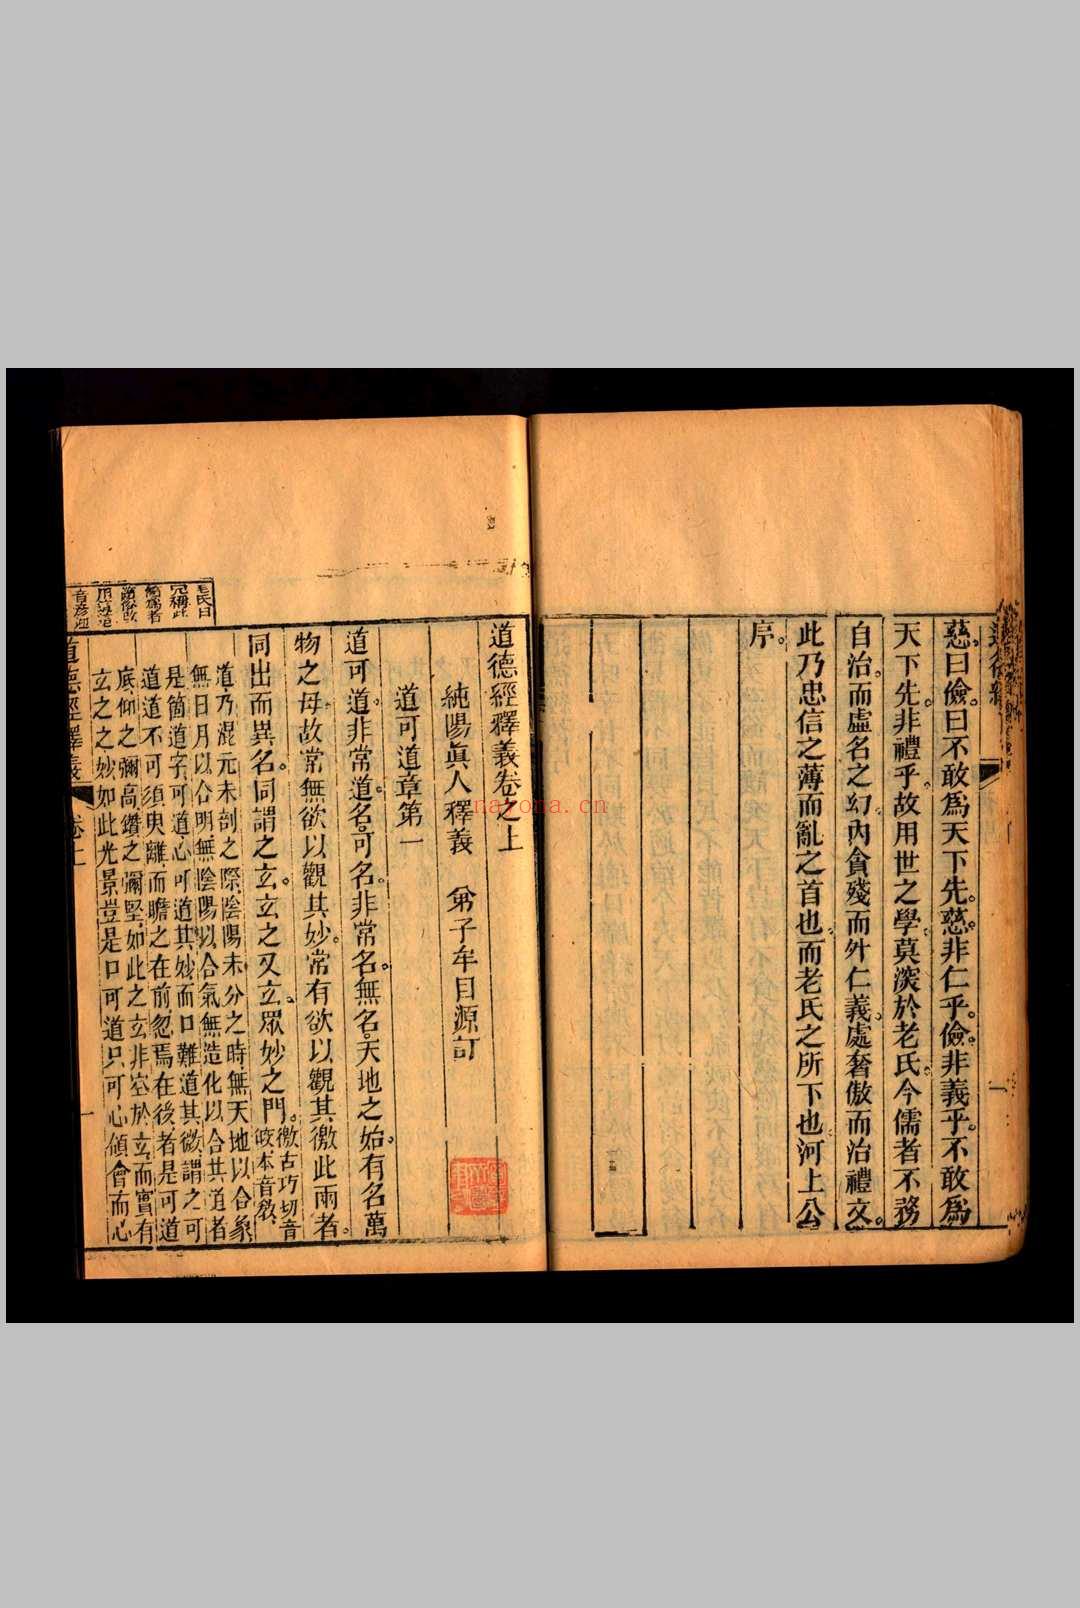 慈曰儉曰不敢為天下先慈非仁乎儉非義乎不敢為
天下先非禮乎故用世之學莫深於老氏今儒者不務
自治而虛名之幻內貪殘而外仁義處奢傲而治禮文
此乃忠信之薄而亂之首也而老氏之所下也河上公
序
道德經釋義卷之上
純陽眞人釋義 弟子牟目源訂
道可道章第一
道可道非常道名可名非常名無名天地之始有名萬
物之母故常無欲以觀其妙常有欲以觀其徼此兩者
同出而異名同謂之玄玄之又玄眾妙之門徼古巧切音
皎本音敎
道乃混元未剖之際陰陽未分之時無天地以合象
無日月以合明無陰陽以合氣無造化以合共道者
是箇道字可道心可道其妙而口難道其微謂之可
道道不可須臾離而瞻之在前忽焉在後者是可道
底仰之彌高鑽之彌堅如此之玄非空於玄而實有
玄之之妙如此光景豈是口可道只可心傾會而心
毛氏曰
道德經釋義 卷上 一
nayona.cn